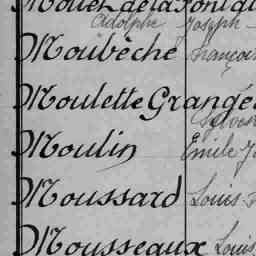 Mollet de la Font
Adolphe Joseph
Moubèche François
Moulette Grangé
Sylvest
Moulin Emile J
Moussard Louis
Mousseaux Louis